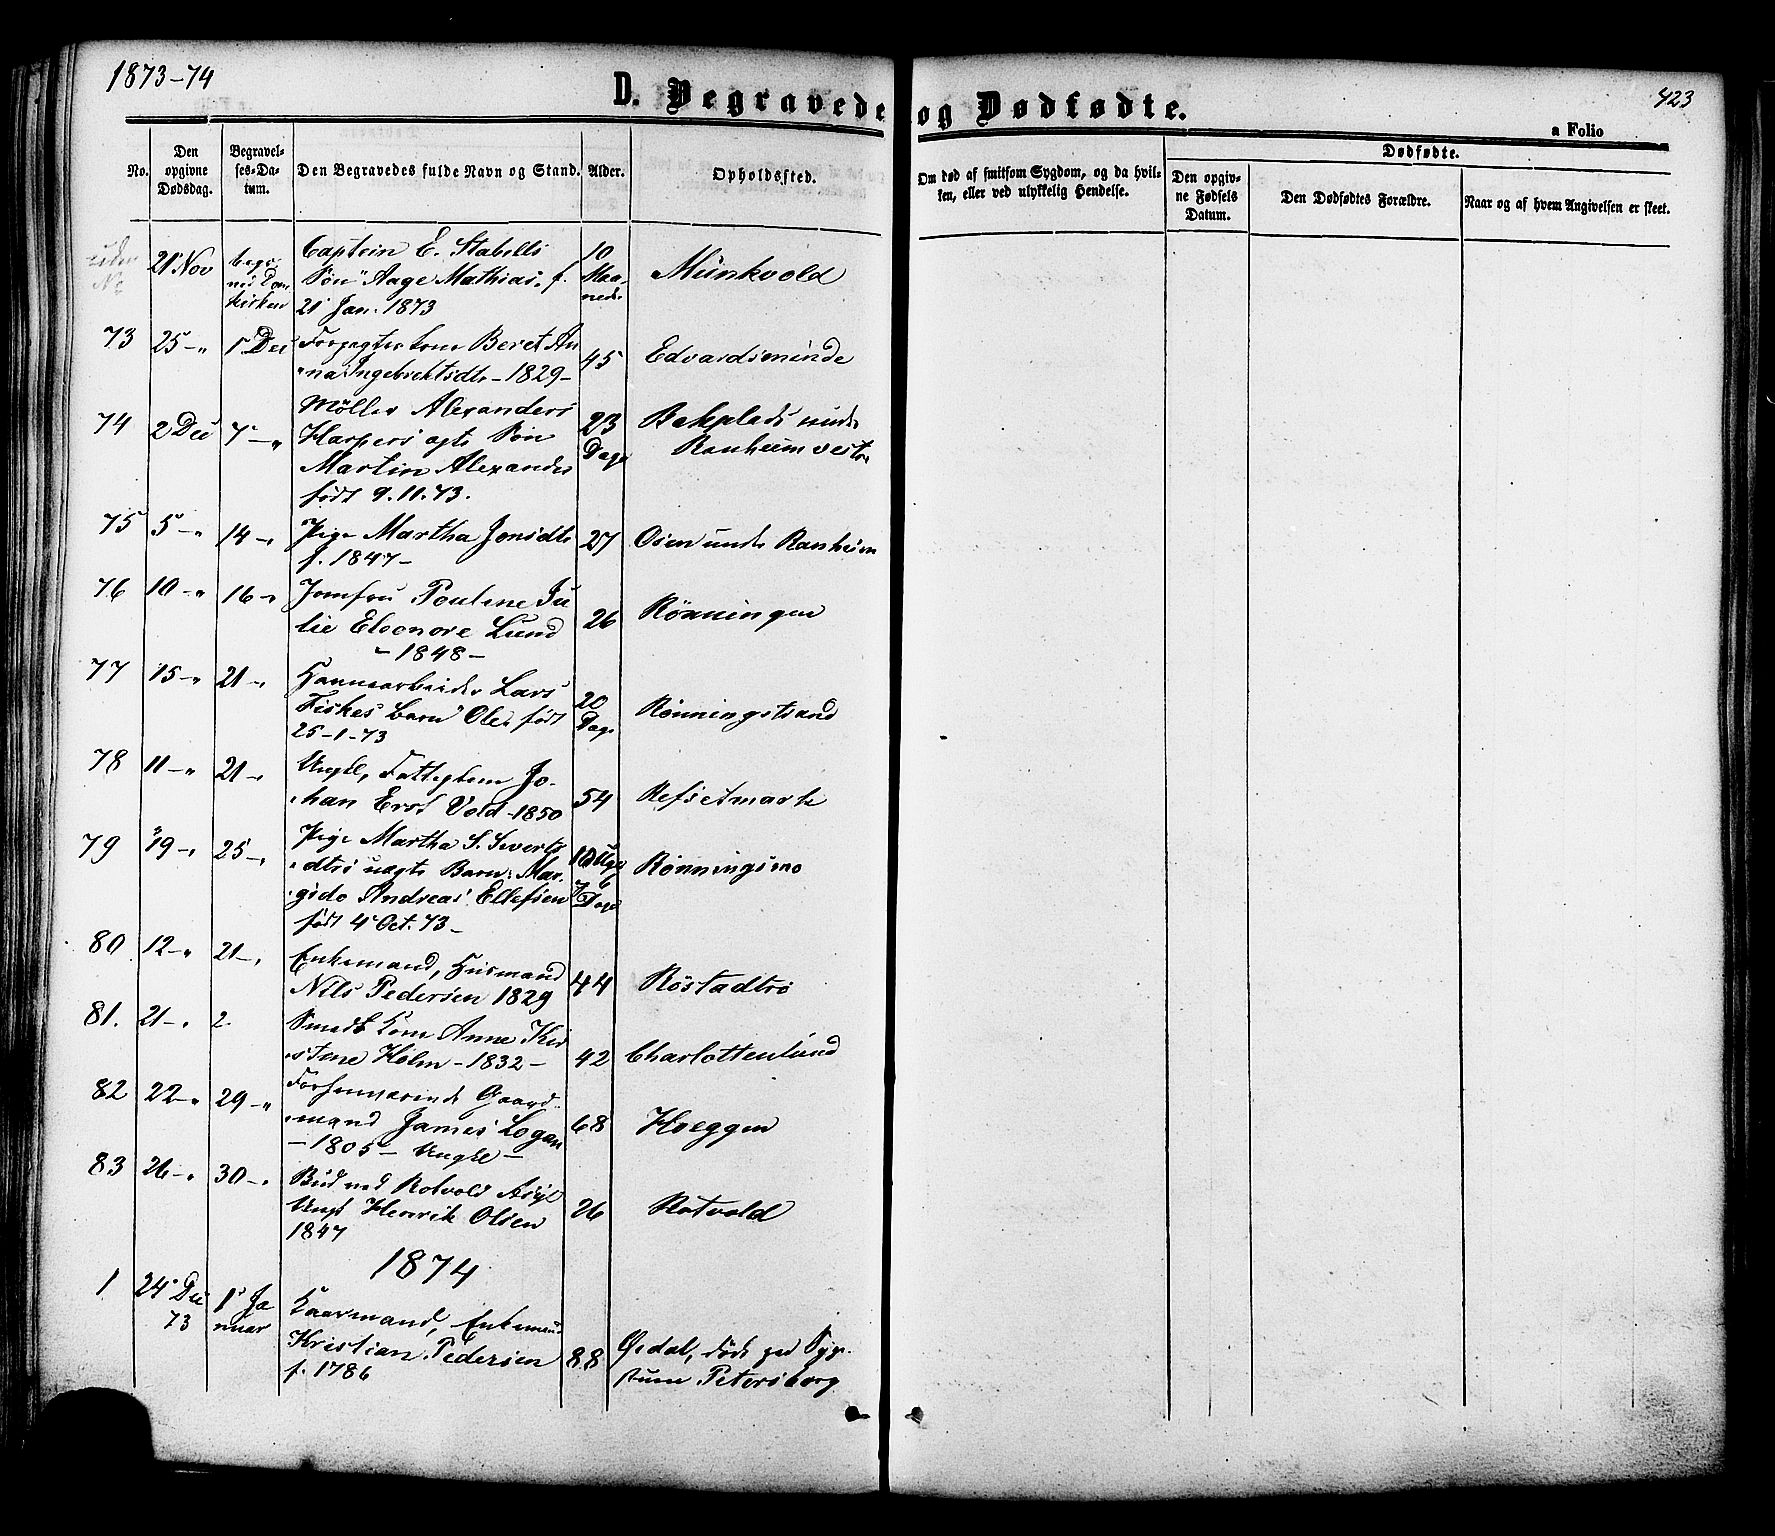 1873-74
D. Begravede og Dødfødte.
423
a Folio
No.
Den opgivne Dødsdag.
Begravelses-Datum.
Den Begravedes fulde Navn og Stand.
Alder.
Opholdssted.
Om død af smitsom Sygdom, og da hvilken, eller ved ulykkelig Hendelse.
Dødfødte.
Den opgivne Fødsels Datum.
Den Dødfødtes Forældre.
Naar og af hvem Angivelsen er skeet.
uden No
21 Nov
Captein E. Stabells
Søn Aage Mathias. f.
21 Jan. 1873
10
Maa-
neder
Munkvold
73 25-" 1 Dec
Beret An
na Ingebrichtsdtr - 1829-
45
Edvardsminde
74 2 Dec 7-"
Møller Alexanders
Harpers ægte Søn
Martin Alexander
født 9.11.73.
23
Dage
Bakplads under
Ranheim vestre
75 5-" 14-"
Pige Martha Jonsdtr
f. 1847-
27
Osen under Ranheim
76 10-" 16-"
Jomfru Pouline Ju
lie Eleonore Lund
- 1848-
26
Rönningen
77 15-" 21-"
Lars
Fiskes Barn Ole, født
25-1-73
20
Dage
Rönningstrand
78 11-" 21-"
Ungkl, Fattiglem Jo-
han Ernst Vold - 1850
54
Refsetmark
79 19-" 25-"
Pige Martha S. Siverts
dtrs uægte Barn: Mar-
gido Andreas Ellefsen
født 4 Oct. 73-
10 Uger
6
Dage
Rönningsmo
80 12-" 21-"
Enkemand, Husmand
Nils Pedersen 1829
44
Röstadtrö
81. 21-" 2
Smeds Kone Anne Kir
stine Holm - 1832-
42
Charlottenlund
82 22-" 29-"
Forhenværende Gaard-
mand James Logan
- 1805 - Ungkl -
68
Hoeggen
83 26-" 30-"
Bud ved Rotvold Asyl
Ungk Henrik Olsen
1847
26
Rotvold
1874
1 24 Dec
73
1 Ja
nuar
Kaarmand, Enkemand
Kristian Pedersen
f. 1786
88
Øsdal, døde paa Syge-
stuen Petersborg